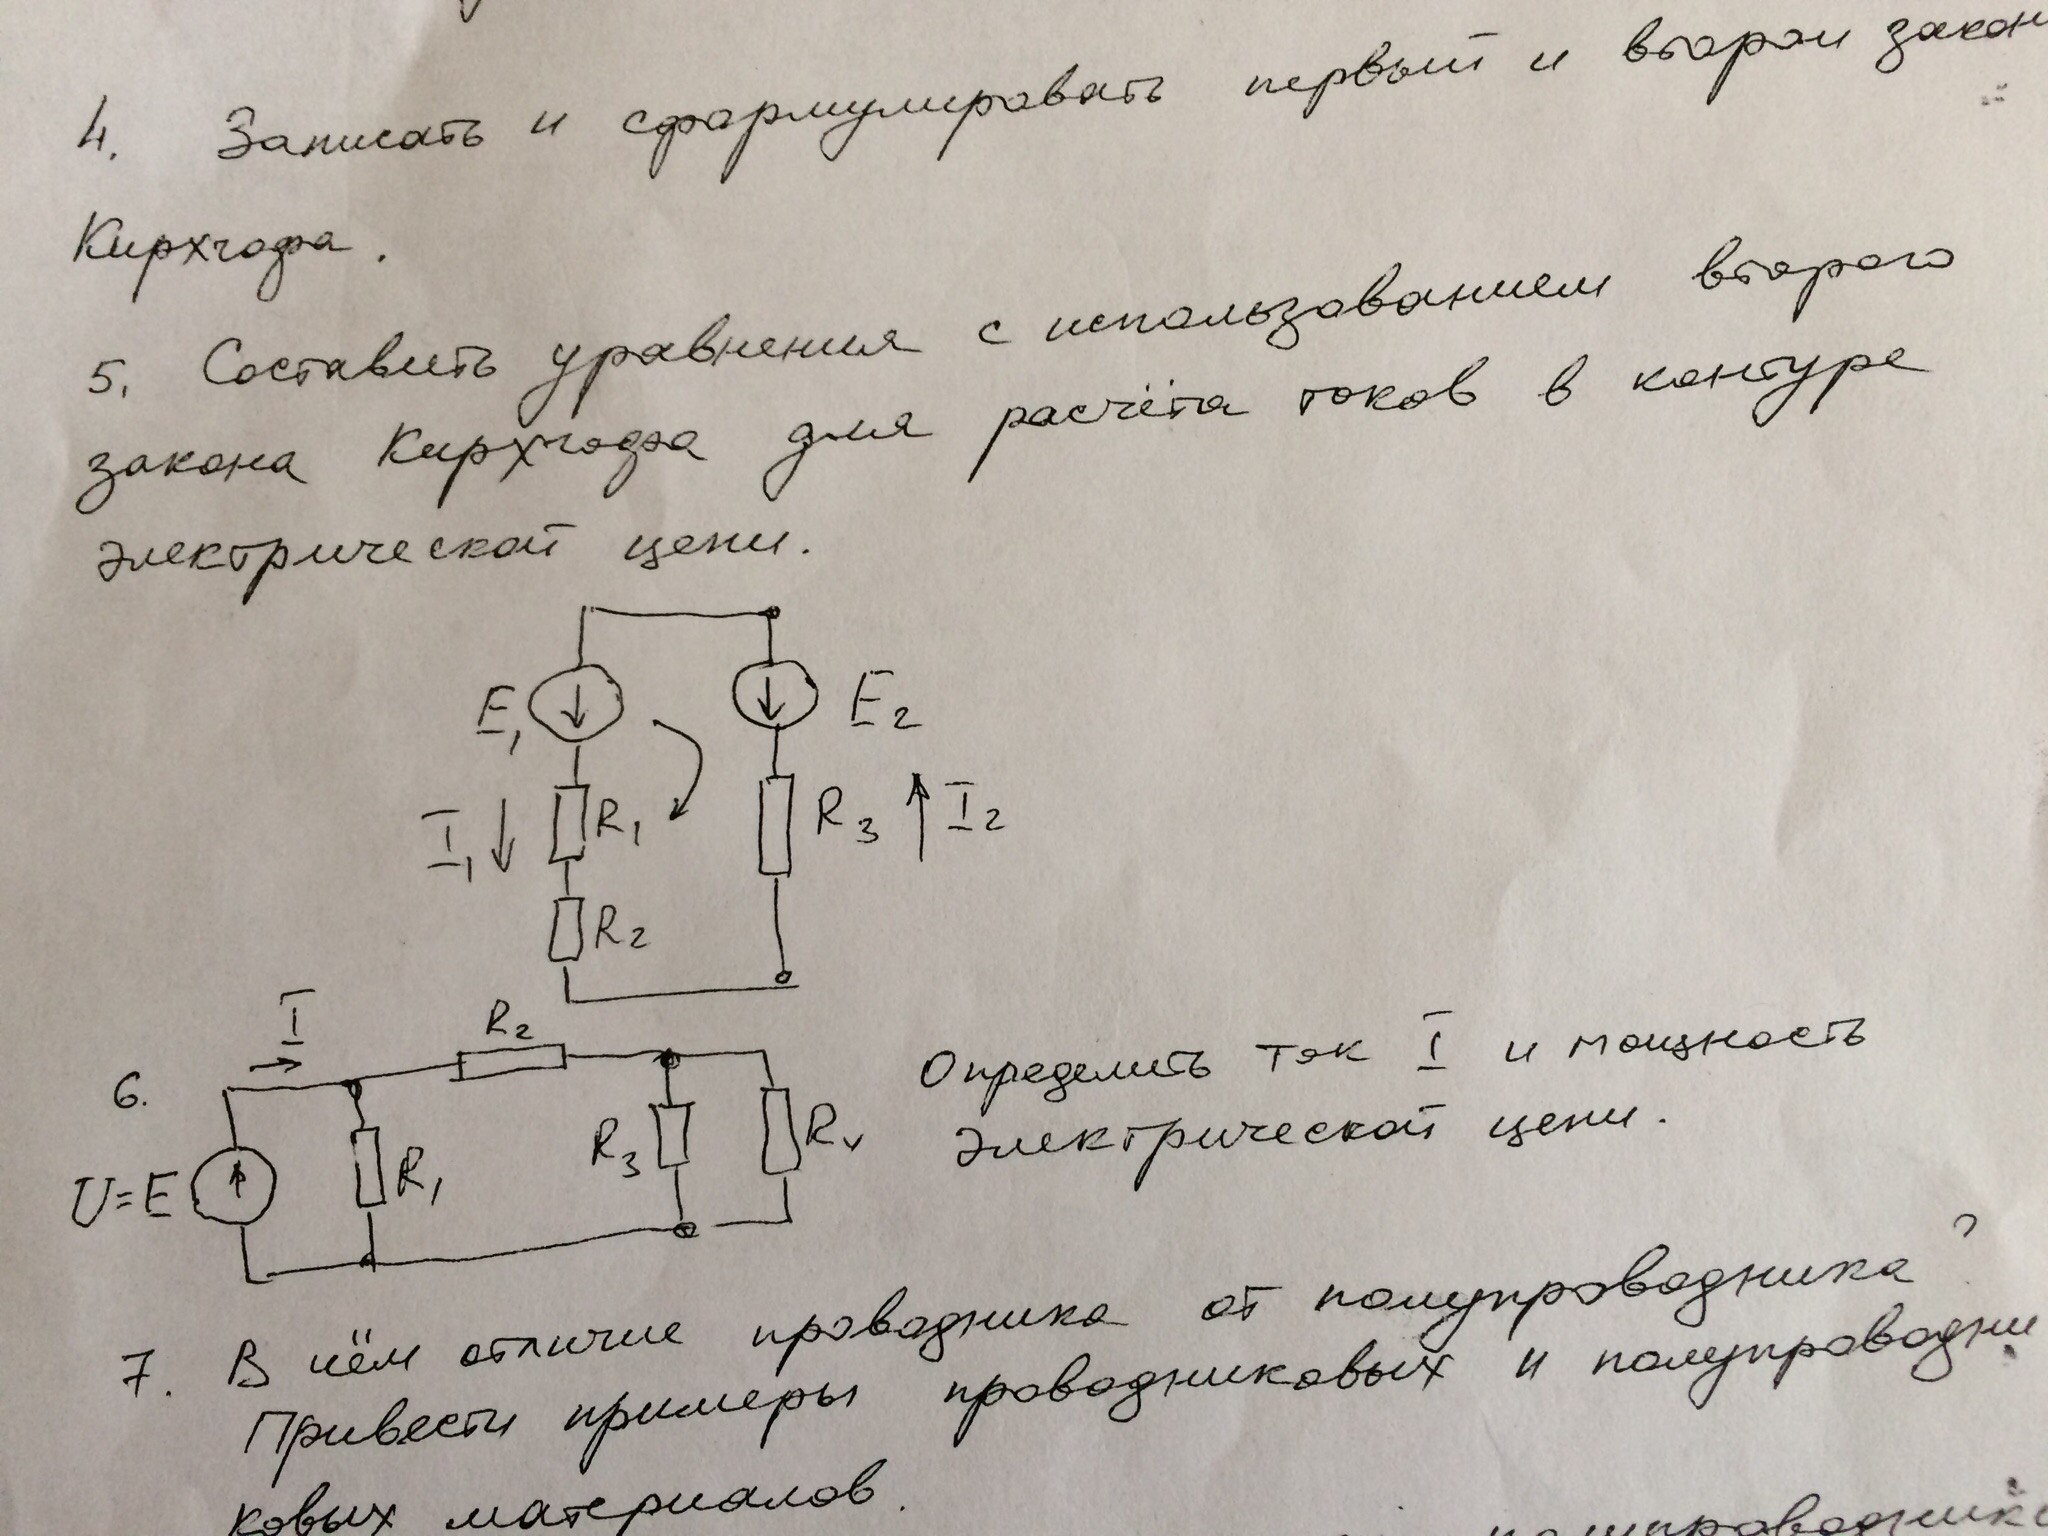 4. Записать и сформулировать первый и второй закон
Кирхгофа.
5. Составить уравнения с использованием второго
закона Кирхгофа для расчёта токов в контуре
электрической цепи.
E1 E2
I1 R1 R3 I2
R2
I R2
6. Определить ток I и мощность
U=E R1 R3 R4 электрической цепи.
7. В чём отличие проводника от полупроводника?
Привести примеры проводниковых и полупроводни
ковых материалов.